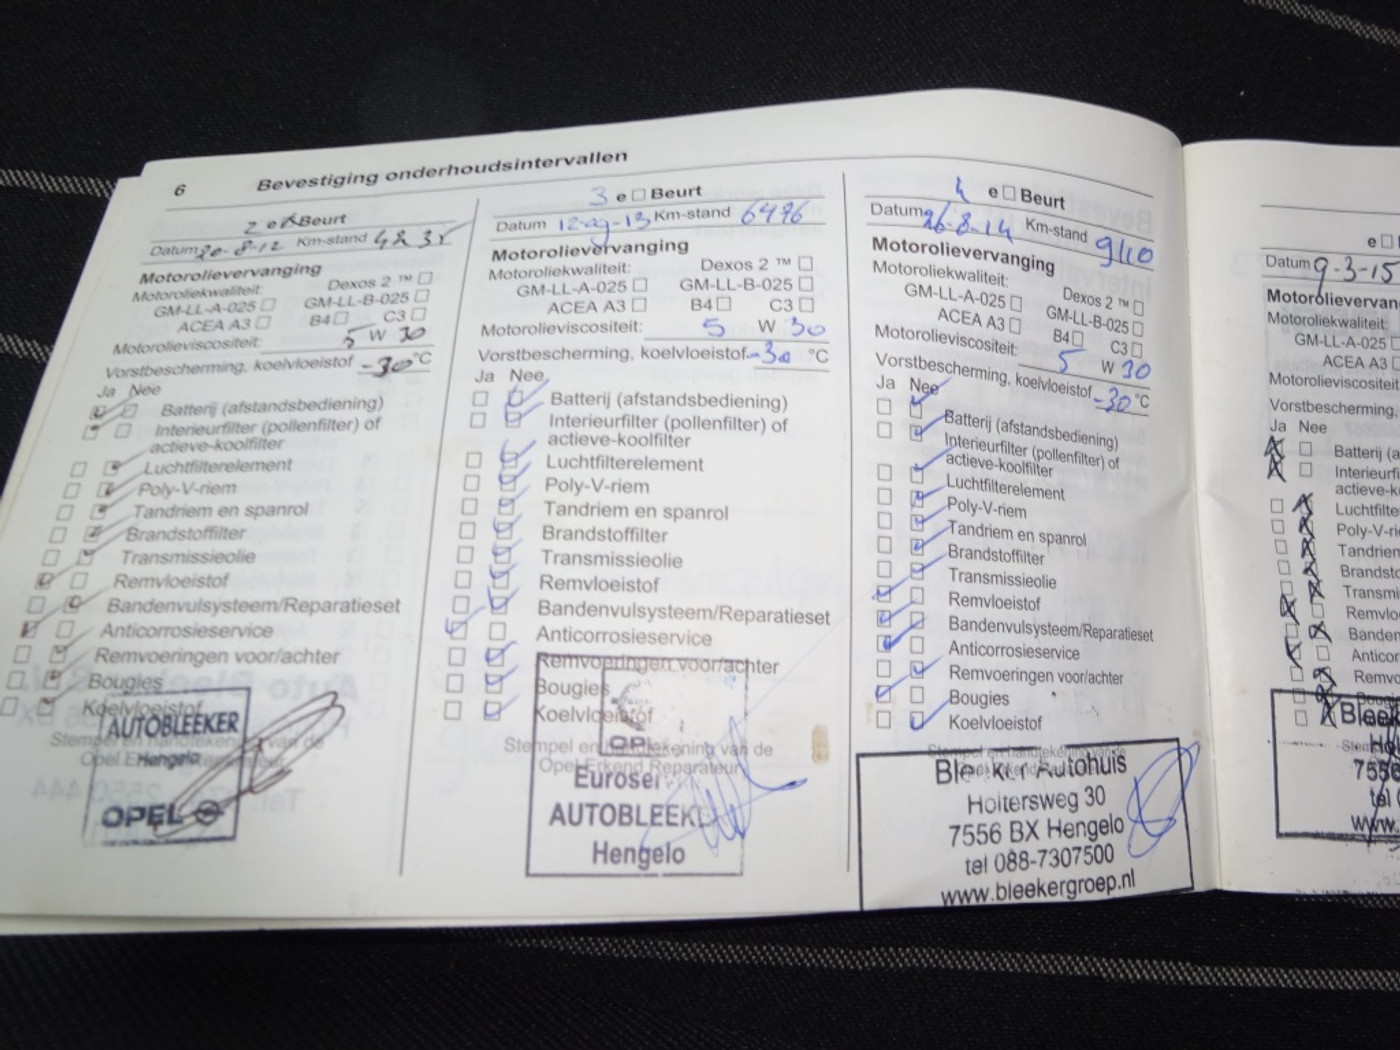 6 Bevestiging onderhoudsintervallen
2 e Beurt
Datum 20-8-12 Km-stand
Motorolievervanging
Motoroliekwaliteit: Dexos 2 ™
GM-LL-A-025 GM-LL-B-025
ACEA A3 B4 C3
Motorolieviscositeit: 5 W 30
Vorstbescherming, koelvloeistof -30 °C
Ja Nee
Batterij (afstandsbediening)
Interieurfilter (pollenfilter) of
actieve-koolfilter
Luchtfilterelement
Poly-V-riem
Tandriem en spanrol
Brandstoffilter
Transmissieolie
Remvloeistof
Bandenvulsysteem/Reparatieset
Anticorrosieservice
Remvoeringen voor/achter
Bougies
Koelvloeistof
Stempel en handtekening van de
Opel Erkend
AUTOBLEEKER
Hengelo
OPEL
3 e Beurt
Datum 12-ag-13 Km-stand 6496
Motorolievervanging
Motoroliekwaliteit: Dexos 2 ™
GM-LL-A-025 GM-LL-B-025
ACEA A3 B4 C3
Motorolieviscositeit: 5 W 30
Vorstbescherming, koelvloeistof -30 °C
Ja Nee
Batterij (afstandsbediening)
Interieurfilter (pollenfilter) of
actieve-koolfilter
Luchtfilterelement
Poly-V-riem
Tandriem en spanrol
Brandstoffilter
Transmissieolie
Remvloeistof
Bandenvulsysteem/Reparatieset
Anticorrosieservice
Remvoeringen voor/achter
Bougies
Koelvloeistof
Stempel en handtekening van de
Opel Erkend Reparateur
AUTOBLEEKE
Hengelo
4 e Beurt
Datum 26-8-14 Km-stand 9110
Motorolievervanging
Motoroliekwaliteit: Dexos 2 ™
GM-LL-A-025 GM-LL-B-025
ACEA A3 B4 C3
Motorolieviscositeit: 5 W 30
Vorstbescherming, koelvloeistof -30 °C
Ja Nee
Batterij (afstandsbediening)
Interieurfilter (pollenfilter) of
actieve-koolfilter
Luchtfilterelement
Poly-V-riem
Tandriem en spanrol
Brandstoffilter
Transmissieolie
Remvloeistof
Bandenvulsysteem/Reparatieset
Anticorrosieservice
Remvoeringen voor/achter
Bougies
Koelvloeistof
Stempel en handtekening van de
Bleeker Autohuis
Holtersweg 30
7556 BX Hengelo
tel 088-7307500
www.bleekergroep.nl
e
Datum 9-3-15
Motorolievervan
Motoroliekwaliteit:
GM-LL-A-025
ACEA A3
Motorolieviscosite
Vorstbescherming,
Ja Nee
Batterij (a
Interieurfi
actieve-k
Luchtfilte
Poly-V-ri
Tandrien
Brandsto
Transmi
Remvlo
Banden
Anticor
Remvo
Bougi
Bleek
755
tel
www.